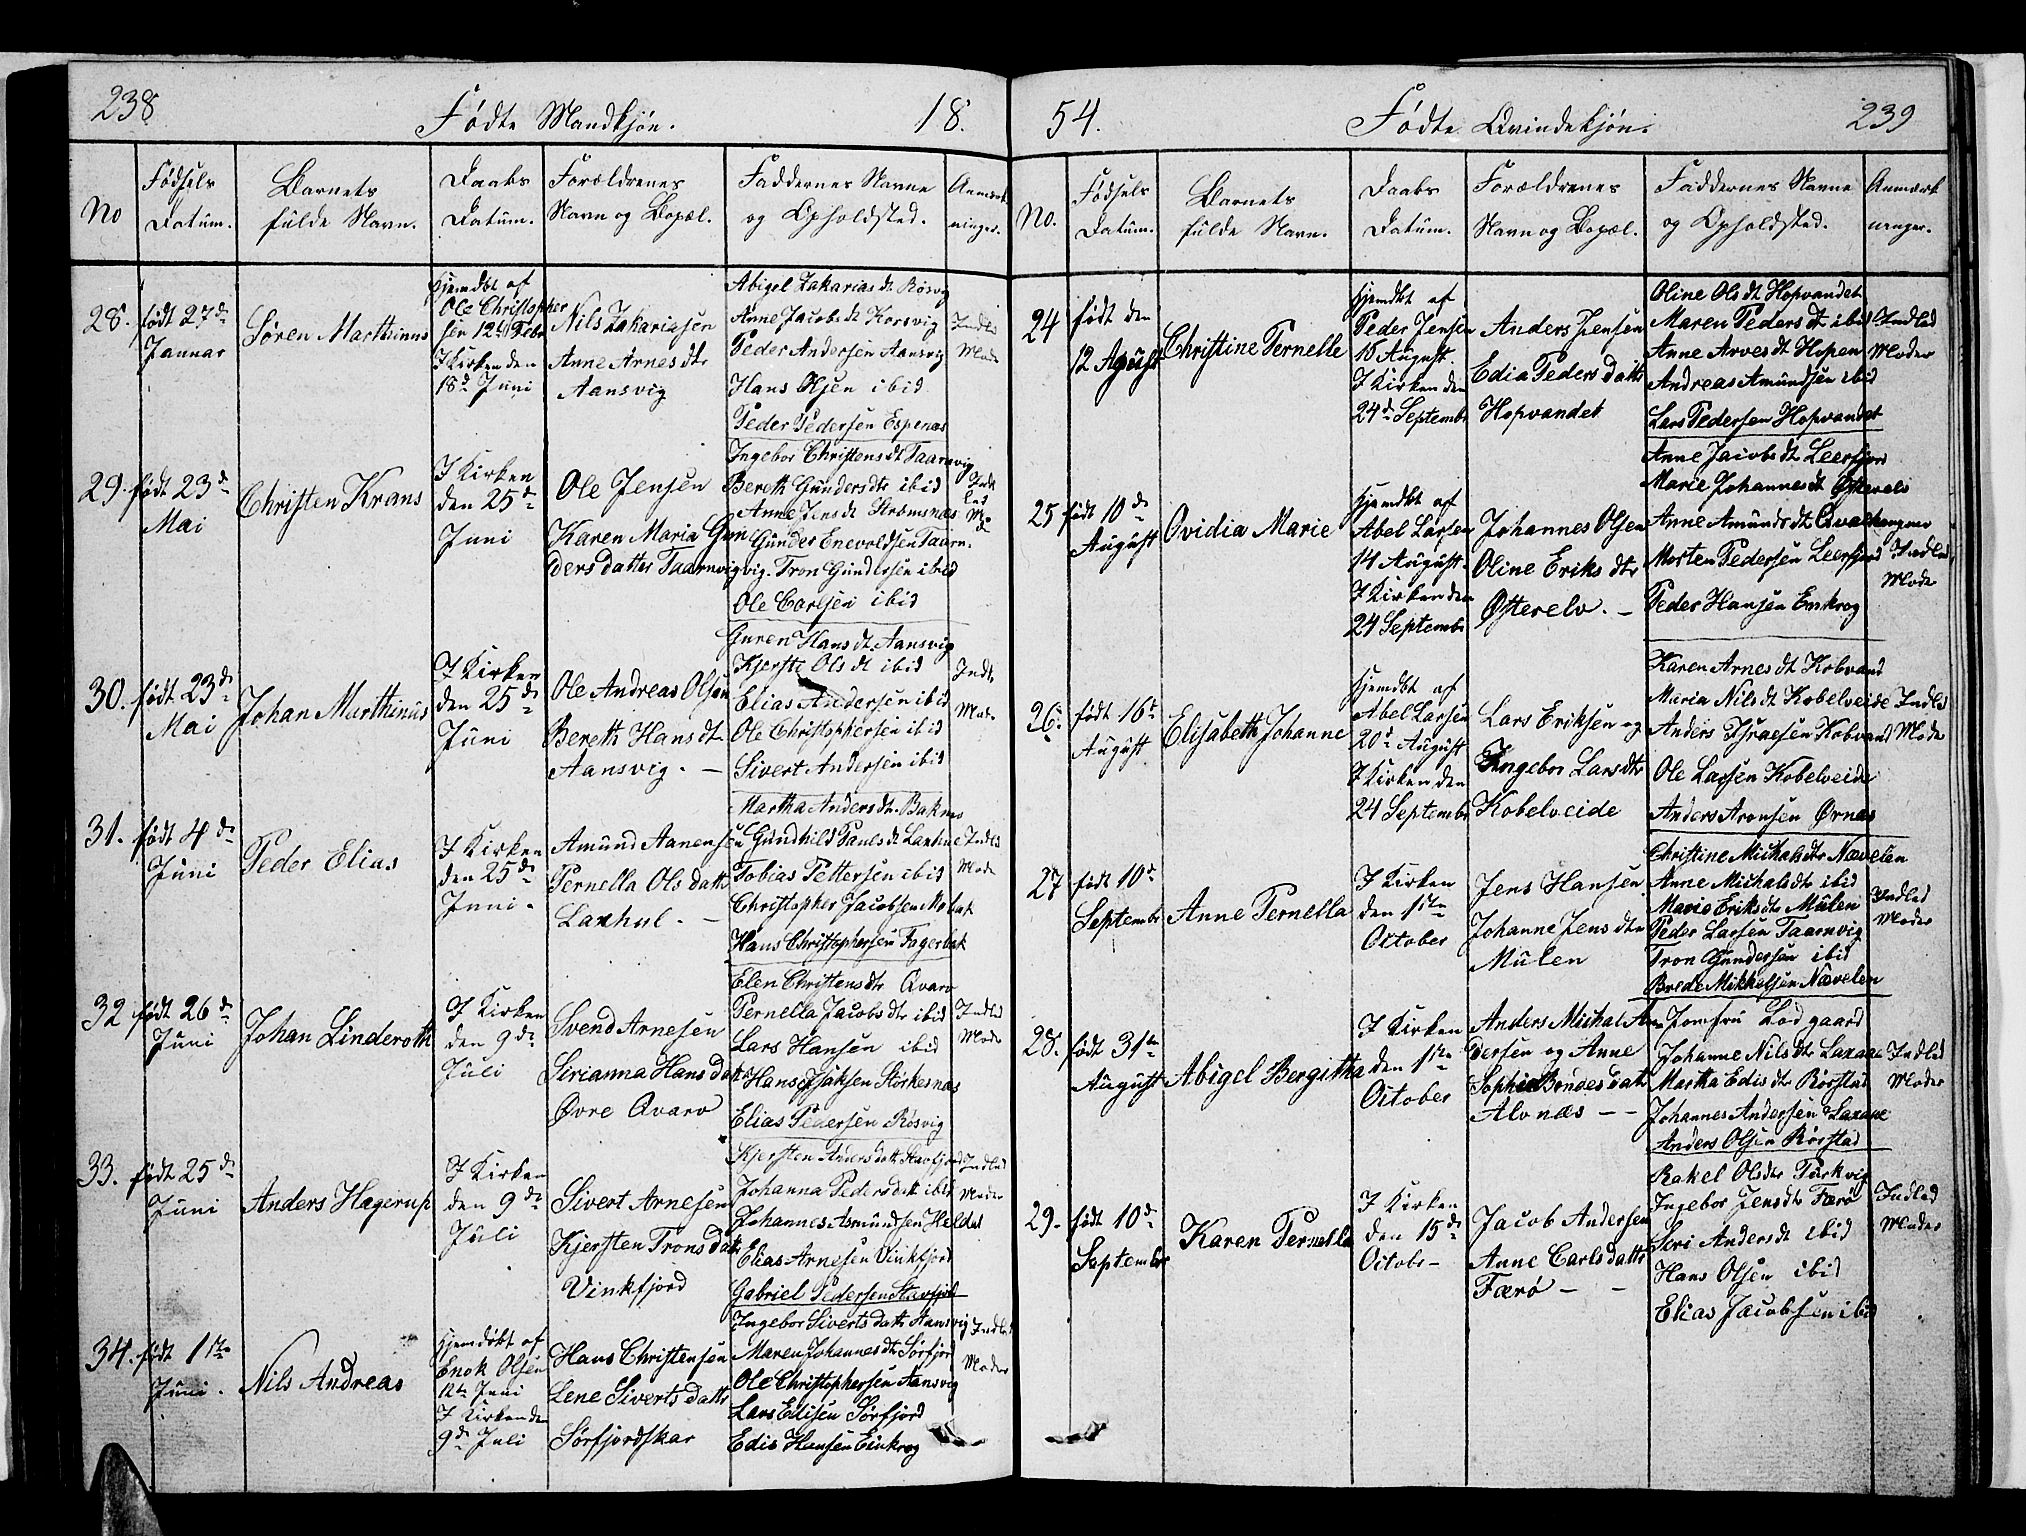 238
Fødte Mandkjøn.
18.
No
Fødsels Datum.
Barnets fulde Navn.
Daabs Datum.
Forældrenes Navn og Bopæl.
Faddernes Navne og Opholdsted.
Anmærkninger.
28.
født 27de
Januar
Søren Marthinus
Hjemdbt af
Ole Christopher
sen 12te Febr
I Kirken den
18d Juni
Nils Zakariasen
Anne Arnes dtr
Aansvig
Abigel Zakarias dt Røsvig
Anne Jacobs dt Korsvig
Peder Andersen Aansvig
Hans Olsen ibid
Peder Pedersen Espenæs
Indled
Mode
29.
født 23de
Mai
Christen Krans
I Kirken
den 25de
Juni
Ole Jensen
Karen Maria Gun
ders datter Taarnvig
Ingebor Christens dt Taarnvig
Bereth Gunders dtr ibid
Anne Jens dt Strømsnæs
Gunder Enevoldsen Taarn-
vig. Tron Gundersen ibid
Ole Carlsen ibid
Ind
led
30.
født 23de
Mai
Johan Marthinus
I Kirken
den 25de
Juni
Ole Andreas Olsen
Bereth Hans dt
Aansvig. —
Guren Hans dt. Aansvig
Kjersti Ols dt ibid
Elias Andersen ibid
Ole Christophersen ibid
Sivert Andersen ibid
Indle
Mode
31.
født 4de
Juni
Peder Elias
I Kirken
den 25de
Juni.
Amund Aanensen
Pernella Ols datt
Laxhul. —
Martha Anders dtr. Baknæs
Gundhild Pauls dt Laxhul
Tobias Pettersen ibid
Christopher Jacobsen
Hans Christophersen Fagerbak
Indled
Mode
32
født 26de
Juni
Johan Linderoth
I Kirken
den 9de
Juli
Svend Arnesen
Sirianna Hans datt
Øvre Qvarv
Elen Christens dtr Qvarv
Pernella Jacobs dtr ibid
Lars Hansen ibid
Hans Isaksen Storkesnæs
Elias Pedersen Røsvig
Indled
Mode
33.
født 25de
Juni
Anders Hagerup
I Kirken
den 9de
Juli
Sivert Arnesen
Kjersten Trons datt
Vinkfjord
Kjersten Anders datt
Johanna Peders datt ibid
Johannes Asmundsen Heldal
Elias Arnesen Vinkfjord
Gabriel Pedersen
Indled
Moder
34.
født 1ste
Juni.
Nils Andreas
Hjemdøbt af
Enok Olsen
12te Juni
I Kirken den
9d Juli
Hans Christensen
Lene Siverts datt
Sørfjordskar
Ingebor Siverts datt Aansvig
Maren Johannes dtr Sørfjord
Ole Christophersen Aansvig
Lars Edisen Sørfjord
Edis Hansen Einkrog
Indled
Moder
54.
Fødte Qvindekjøn.
239
No.
Fødsels Datum.
Barnets fulde Navn.
Daabs Datum.
Forældrenes Navn og Bopæl.
Faddernes Navne og Opholdsted.
Anmærkninger.
24
født den
12 August
Christine Pernelle
Hjemdbt af
Peder Jensen
16 August.
I Kirken den
24d Septembr
Anders Jensen
Edia Peders datt
Hopvandet
Oline Ols dt Hopvandet
Maren Peders dt ibid
Anne Arves dt Hopen
Andreas Amundsen ibid
Lars Pedersen Hopvandet
Indled
Moder
25
født 10de
August
Ovidia Marie
Hjemdbt af
Abel Larsen
14 August.
I Kirken den
24 Septembr
Johannes Olsen
Oline Eriks dtr
Østerelv. —
Anne Jacobs dt Leerfjord
Marie Johannes dt Østerelv
Anne Amunds dt
Morten Pedersen Leerfjord
Peder Hansen Einkrog
Indled
Mode
26
født 16d
August
Elisabeth Johanne
Hjemdbt af
Abel Larsen
20d August
I Kirken den
24 Septembr
Lars Eriksen og
Ingebor Lars dtr
Kobelveide
Karen Arnes dt Kobvand
Maria Nils dt Kobelveide
Anders Israelsen Kobvand
Ole Larsen Kobelveide
Anders Aronsen Ørnæs
Indled
Mode
27
født 10d
Septembr
Anne Pernella
I Kirken
den 1ste
October
Jens Hansen
Johanne Jens dtr
Mulen
Christine Michals dtr Nævelen
Anne Michals dtr ibid
Marie Eriks dtr Mulen
Peder Larsen Taarnvig
Tron Gundersen ibid
Brede Mikkelsen Nævelen
Indled
Moder
28.
født 31te
August
Abigel Bergitha
I Kirken
den 1ste
October
Anders Michal An
dersen og Anne
Sophie Bendes datt
Alvnæs — —
Jomfru Lodgaard
Johanne Nils dtr Laxaae
Martha Edis dtr Rørstad
Johannes Andersen Laxaae
Anders Olsen Rørstad
Indled
Moder
29.
født 10de
September
Karen Pernella
I Kirken
den 15de
Octobr —
Jacob Andersen
Anne Carls datt
Færø — —
Rakel Ols dtr Purkvig
Ingebor Jens dtr Færø
Seri Anders dt ibid
Hans Olsen ibid
Elias Jacobsen ibid
Indled
Moder